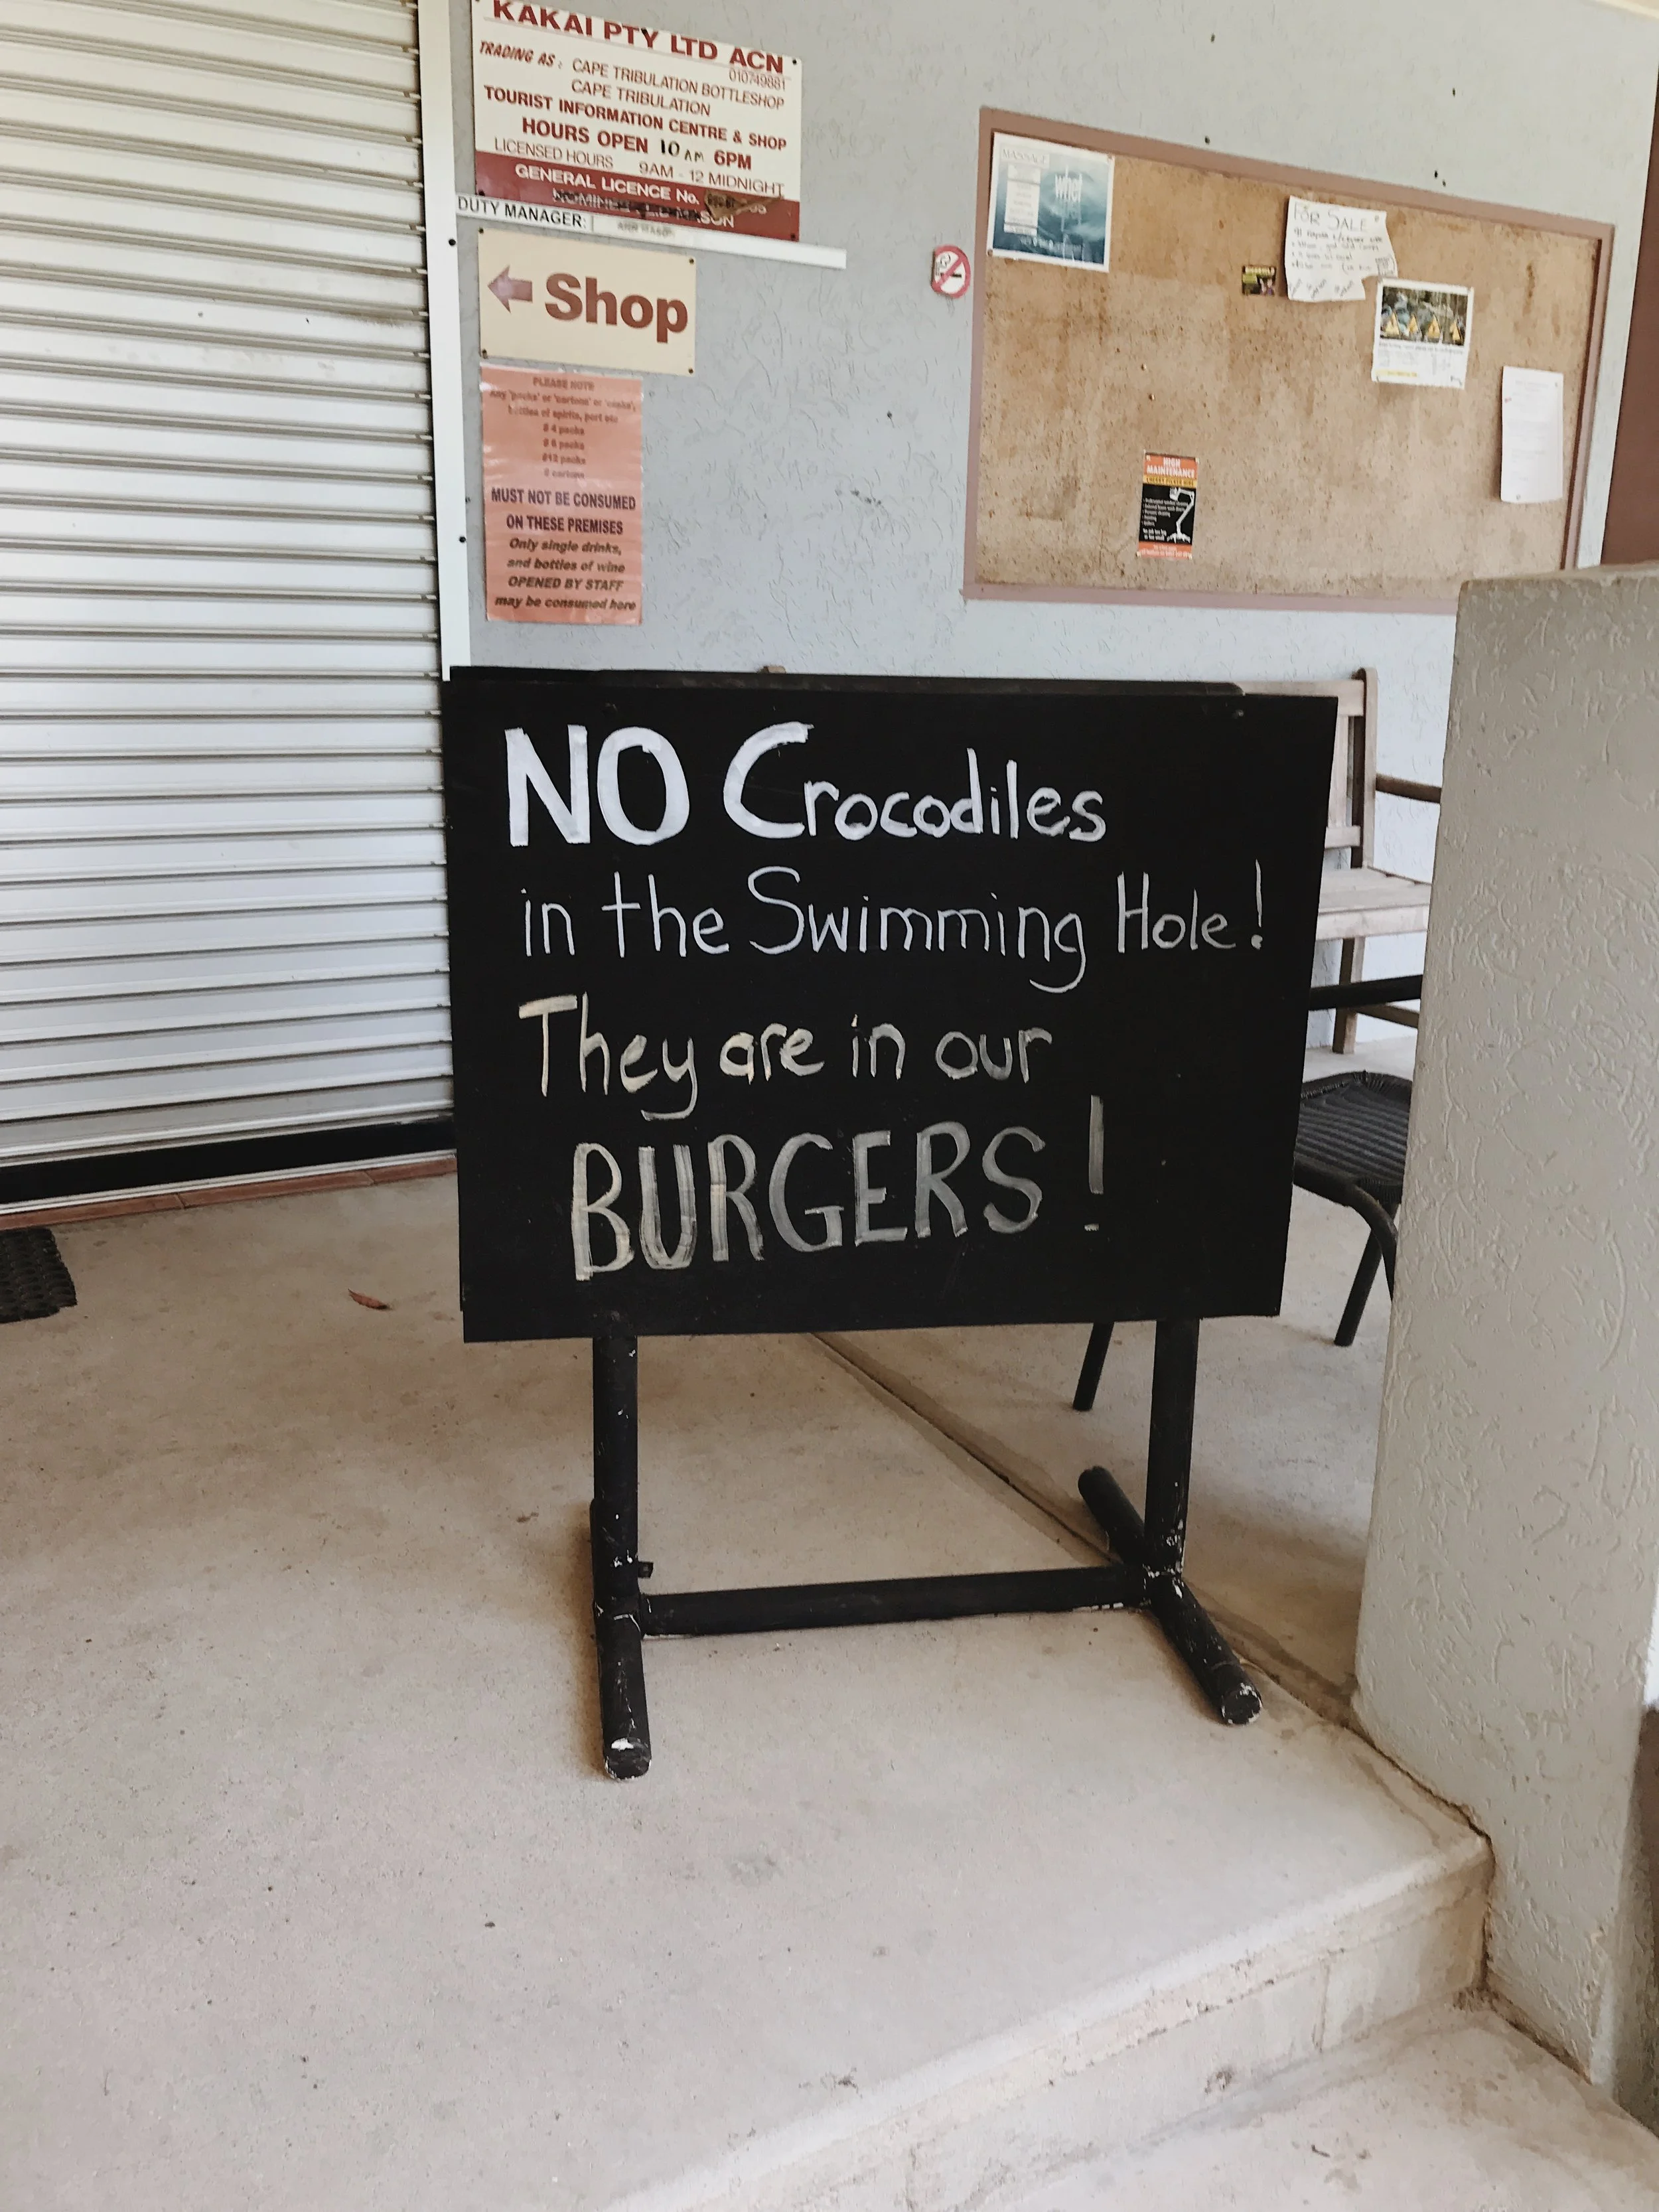 KAKAI PTY LTD ACN
010749881
TRADING AS: CAPE TRIBULATION BOTTLESHOP
CAPE TRIBULATION
TOURIST INFORMATION CENTRE & SHOP
HOURS OPEN 10 AM 6PM
LICENSED HOURS 9AM - 12 MIDNIGHT
GENERAL LICENCE No.
DUTY MANAGER:
Shop
PLEASE NOTE
Any 'packs' or 'cartons' or 'casks',
bottles of spirits, port etc
4 packs
6 packs
12 packs
cartons
MUST NOT BE CONSUMED
ON THESE PREMISES
Only single drinks,
and bottles of wine
OPENED BY STAFF
may be consumed here
MASSAGE
FOR SALE
HIGH
MAINTENANCE
NO Crocodiles
in the Swimming Hole!
They are in our
BURGERS!